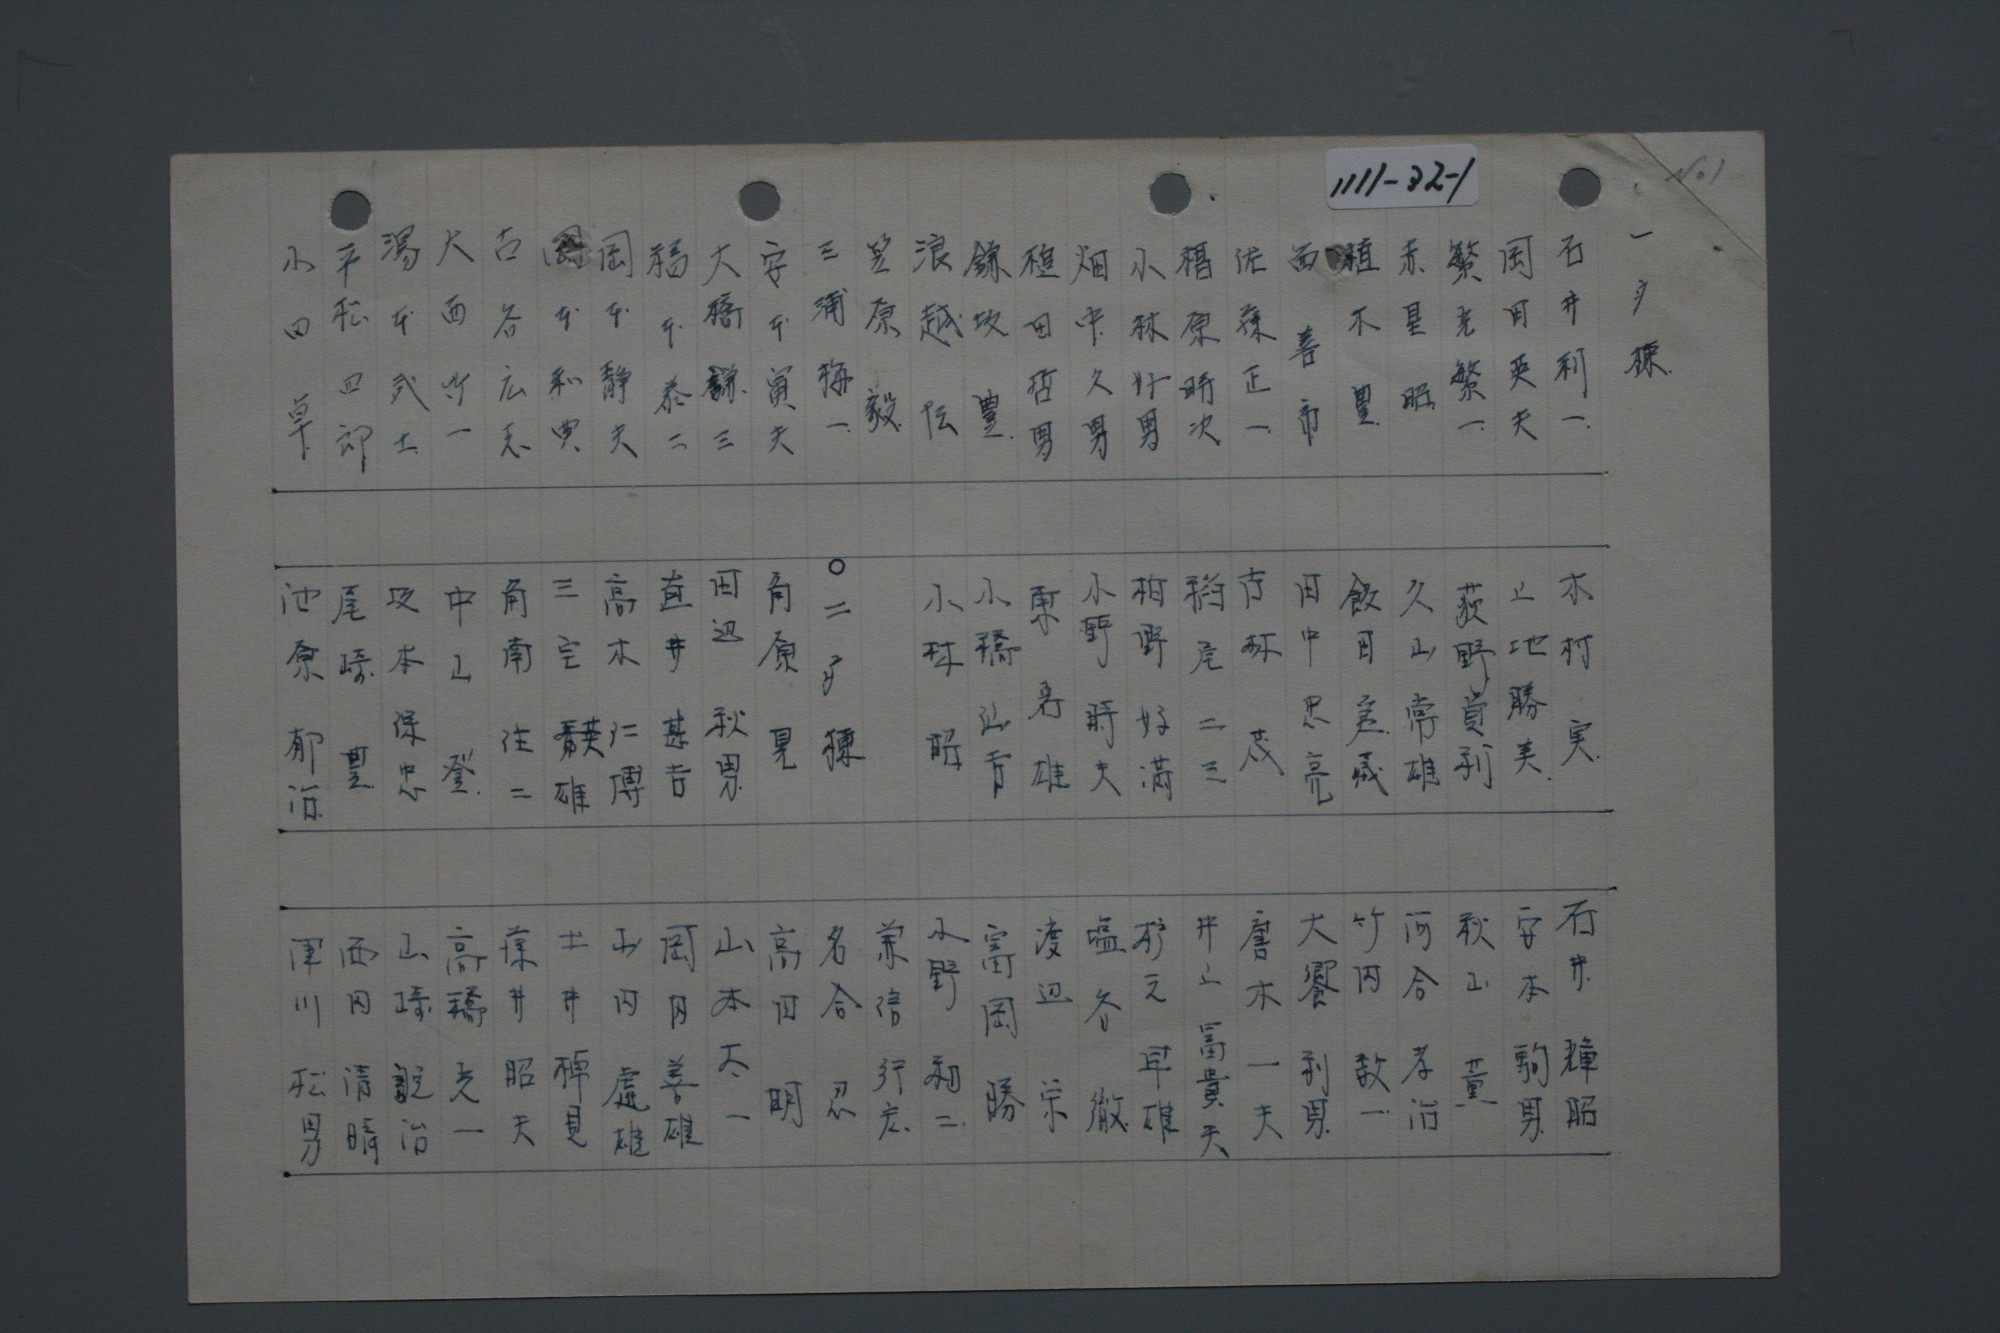 No1
1111-32-1
一夛棟
石井利一
岡田英夫
繁光繁一
赤星昭
植木豊
西喜市
佐藤正一
楢原時次
小林好男
畑中久男
植田哲男
鎌坂豊
浪越伝
笠原毅
三浦梅一
安本寅夫
大橋謙三
福本泰二
岡本静夫
岡本和典
古谷広志
大西竹一
湯本武士
平松四郎
小田卓
木村実
上地勝美
荻野賞利
久山常雄
飯田差蔵
田中忠亮
市林茂
稲尾二三
柏野好満
小野時夫
東寿雄
小橋山青
小林昭
○二夛棟
角原晃
田辺秋男
直井甚吉
高木仁博
三宅雄
角南佐二
中山登
坂本保忠
尾崎豊
池原郁治
石井輝昭
安本駒男
秋山薫
河合孝治
竹内数一
大饗利男
唐木一夫
井上冨貴夫
杉元早雄
塩谷徹
渡辺宗
富岡勝
水野和二
兼信行広
名合忍
高田明
山本太一
岡田善雄
山内處雄
土井禎晃
藤井昭夫
高橋光一
山崎説治
西内清晴
津川松男